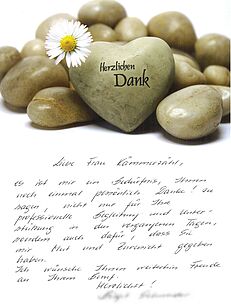 Herzlichen
Dank
Liebe Frau Kammerzähl,
es ist mir ein Bedürfnis, Ihnen
noch einmal persönlich Danke! zu
sagen, nicht nur für Ihre
professionelle Begleitung und Unter-
stützung in den vergangenen Tagen,
sondern auch dafür, dass Sie
mir Mut und Zuversicht gegeben
haben.
Ich wünsche Ihnen weiterhin Freude
an Ihrem Beruf.
Herzlichst!